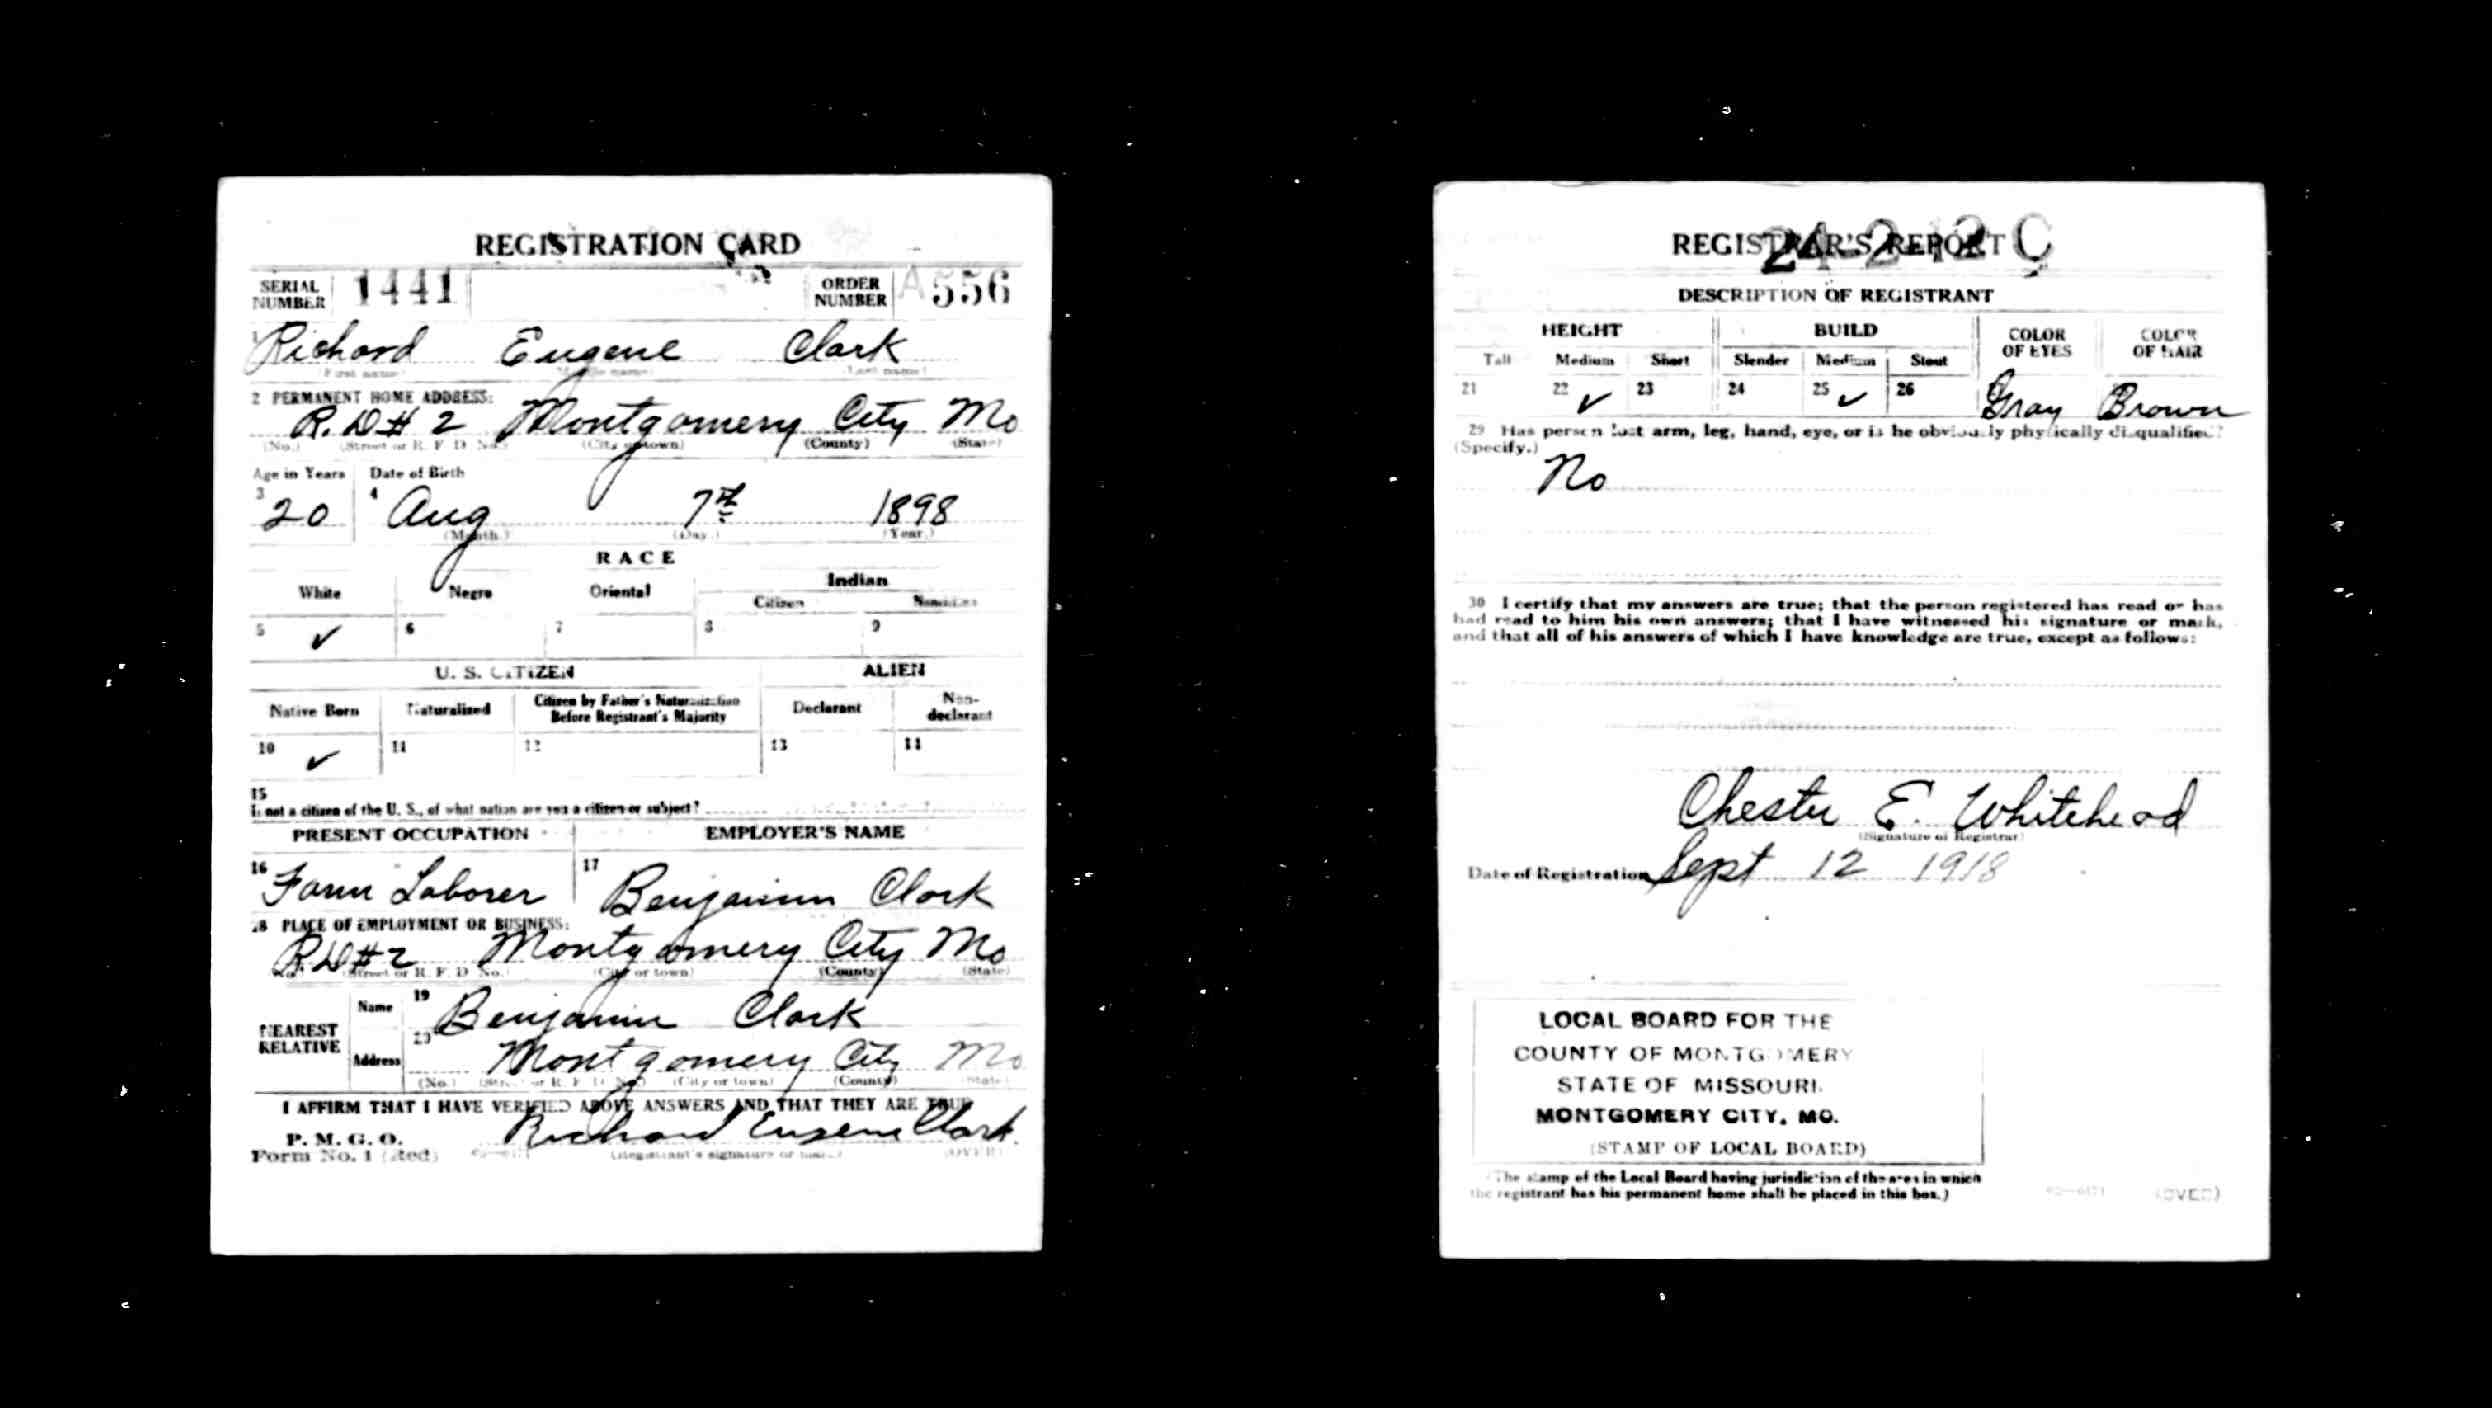 REGISTRATION CARD
SERIAL NUMBER 1441 ORDER NUMBER A 556
1 Richard Eugene Clark
(First name) (Middle name) (Last name)
2 PERMANENT HOME ADDRESS:
R.D# 2 Montgomery City Mo
(No.) (Street or R. F. D. No.) (City or town) (County) (State)
Age in Years Date of Birth
3 20 4 Aug 7th 1898
(Month.) (Day.) (Year.)
RACE
White Negro Oriental Indian
Citizen Noncitizen
5 ✓ 6 7 8 9
U. S. CITIZEN ALIEN
Native Born Naturalized Citizen by Father's Naturalization Before Registrant's Majority Declarant Non-declarant
10 ✓ 11 12 13 14
15
If not a citizen of the U. S., of what nation are you a citizen or subject?
PRESENT OCCUPATION EMPLOYER'S NAME
16 Farm Laborer 17 Benjamin Clark
18 PLACE OF EMPLOYMENT OR BUSINESS:
R.D#2 Montgomery City Mo
(No.) (Street or R. F. D. No.) (City or town) (County) (State)
NEAREST RELATIVE Name 19 Benjamin Clark
Address 20 Montgomery City Mo
(No.) (Street or R. F. D. No.) (City or town) (County) (State)
I AFFIRM THAT I HAVE VERIFIED ABOVE ANSWERS AND THAT THEY ARE TRUE
P. M. G. O.
Form No. 1 (Red) Richard Eugene Clark
(Registrant's signature or mark) (OVER)
REGISTRAR'S REPORT
24-2-12 C
DESCRIPTION OF REGISTRANT
HEIGHT BUILD COLOR OF EYES COLOR OF HAIR
Tall Medium Short Slender Medium Stout
21 22 ✓ 23 24 25 ✓ 26 Gray Brown
29 Has person lost arm, leg, hand, eye, or is he obviously physically disqualified?
(Specify.)
No
30 I certify that my answers are true; that the person registered has read or has
had read to him his own answers; that I have witnessed his signature or mark,
and that all of his answers of which I have knowledge are true, except as follows:
Chester E. Whitehead
(Signature of Registrar)
Date of Registration Sept 12 1918
LOCAL BOARD FOR THE
COUNTY OF MONTGOMERY
STATE OF MISSOURI.
MONTGOMERY CITY, MO.
(STAMP OF LOCAL BOARD)
(The stamp of the Local Board having jurisdiction of the area in which
the registrant has his permanent home shall be placed in this box.)
(OVER)